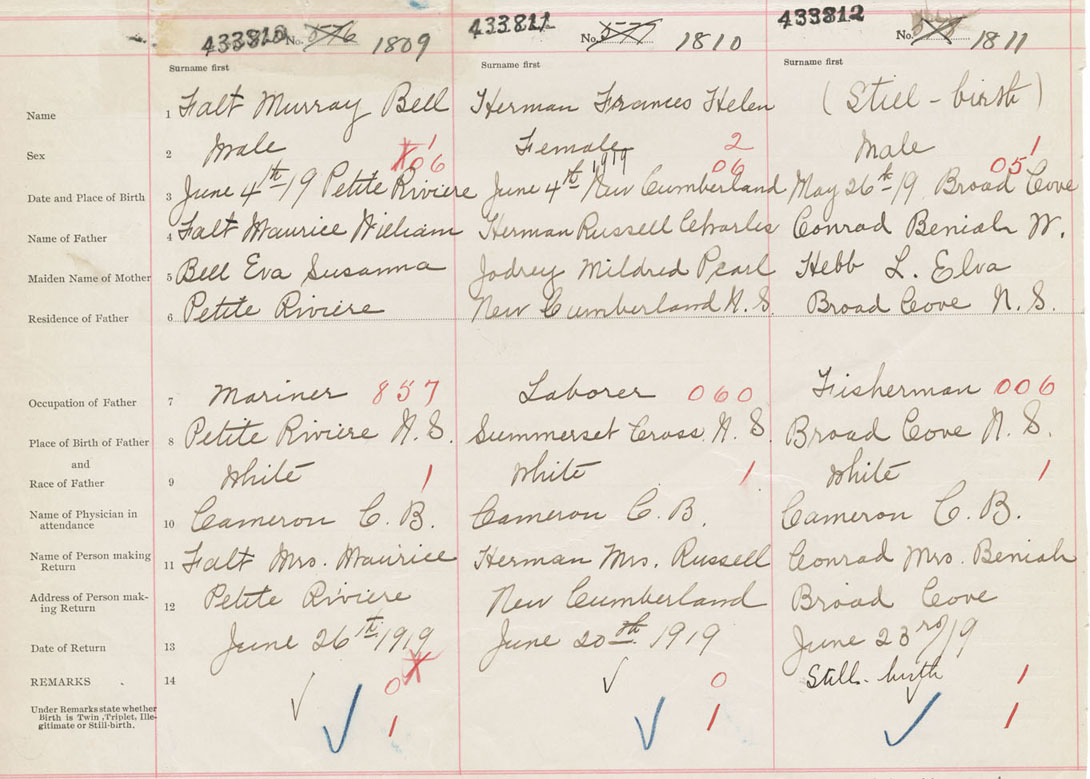 433810 No. 576 1809
433811 No. 577 1810
433812 No. 1811
Surname first Surname first Surname first
Name 1 Falt Murray Bell Herman Frances Helen (Still-birth)
Sex 2 Male 1 Female 2 Male 1
06 1919 06 05
Date and Place of Birth 3 June 4th 19 Petite Riviere June 4th New Cumberland May 26th 19 Broad Cove
Name of Father 4 Falt Maurice William Herman Russell Charles Conrad Beniah W.
Maiden Name of Mother 5 Bell Eva Susanna Jodrey Mildred Pearl Hebb L. Elva
Residence of Father 6 Petite Riviere New Cumberland N.S. Broad Cove N.S.
Occupation of Father 7 Mariner 857 Laborer 060 Fisherman 006
Place of Birth of Father 8 Petite Riviere N.S. Summerset Cross N.S. Broad Cove N.S.
and
Race of Father 9 White 1 White 1 White 1
Name of Physician in
attendance 10 Cameron C.B. Cameron C.B. Cameron C.B.
Name of Person making
Return 11 Falt Mrs. Maurice Herman Mrs. Russell Conrad Mrs. Beniah
Address of Person mak-
ing Return 12 Petite Riviere New Cumberland Broad Cove
Date of Return 13 June 26th 1919 June 20th 1919 June 23rd/19
REMARKS 14 0 0 Still-birth 1
Under Remarks state whether
Birth is Twin, Triplet, Ille-
gitimate or Still-birth. 1 1 1